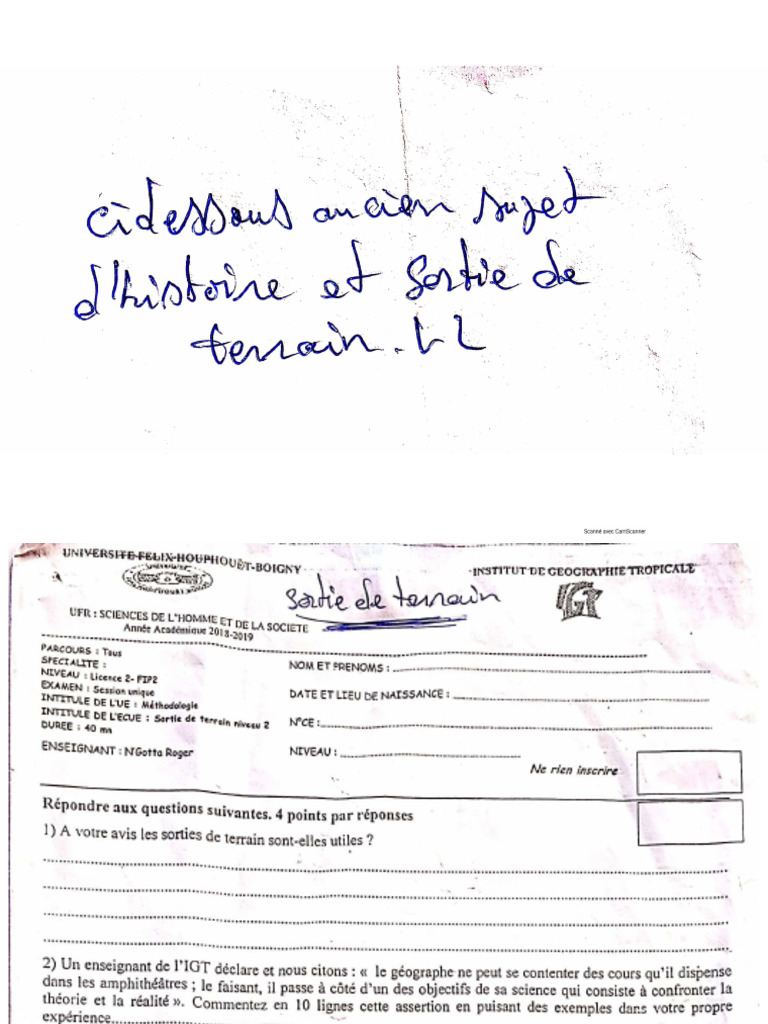 cidessous ancien sujet
d'histoire et sortie de
terrain. L2
Scanné avec CamScanner
UNIVERSITE FELIX-HOUPHOUËT-BOIGNY
INSTITUT DE GEOGRAPHIE TROPICALE
sortie de terrain
IGT
UFR : SCIENCES DE L'HOMME ET DE LA SOCIETE
Année Académique 2018-2019
PARCOURS : Tous
SPECIALITE :
NIVEAU : Licence 2- FIP2
EXAMEN : Session unique
INTITULE DE L'UE : Méthodologie
INTITULE DE L'ECUE : Sortie de terrain niveau 2
DUREE : 40 mn
ENSEIGNANT : N'Gotta Roger
NOM ET PRENOMS :
DATE ET LIEU DE NAISSANCE :
N°CE :
NIVEAU :
Ne rien inscrire
Répondre aux questions suivantes. 4 points par réponses
1) A votre avis les sorties de terrain sont-elles utiles ?
2) Un enseignant de l'IGT déclare et nous citons : « le géographe ne peut se contenter des cours qu'il dispense
dans les amphithéâtres ; le faisant, il passe à côté d'un des objectifs de sa science qui consiste à confronter la
théorie et la réalité ». Commentez en 10 lignes cette assertion en puisant des exemples dans votre propre
expérience